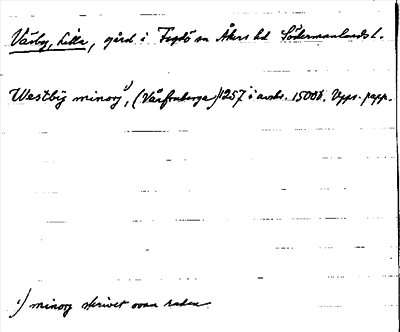 Väsby, Lilla, gård i Fogdö sn Åkers hd Södermanlands l.
Westby minorj¹), (Vårfruberga) 1257 i avskr. 1500t. Upps. papp.
¹) minorj skrivet ovan raden